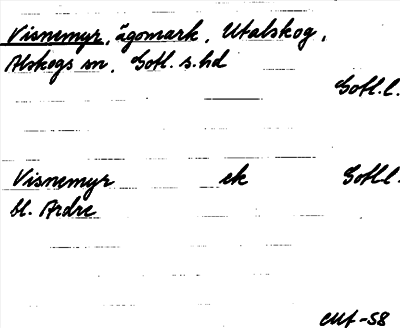 Visnemyr, ägomark, Utalskog,
Alskogs sn, Gotl. s. hd
Gotl. l.
Visnemyr ek Gotl. l.
bl. Ardre
-58